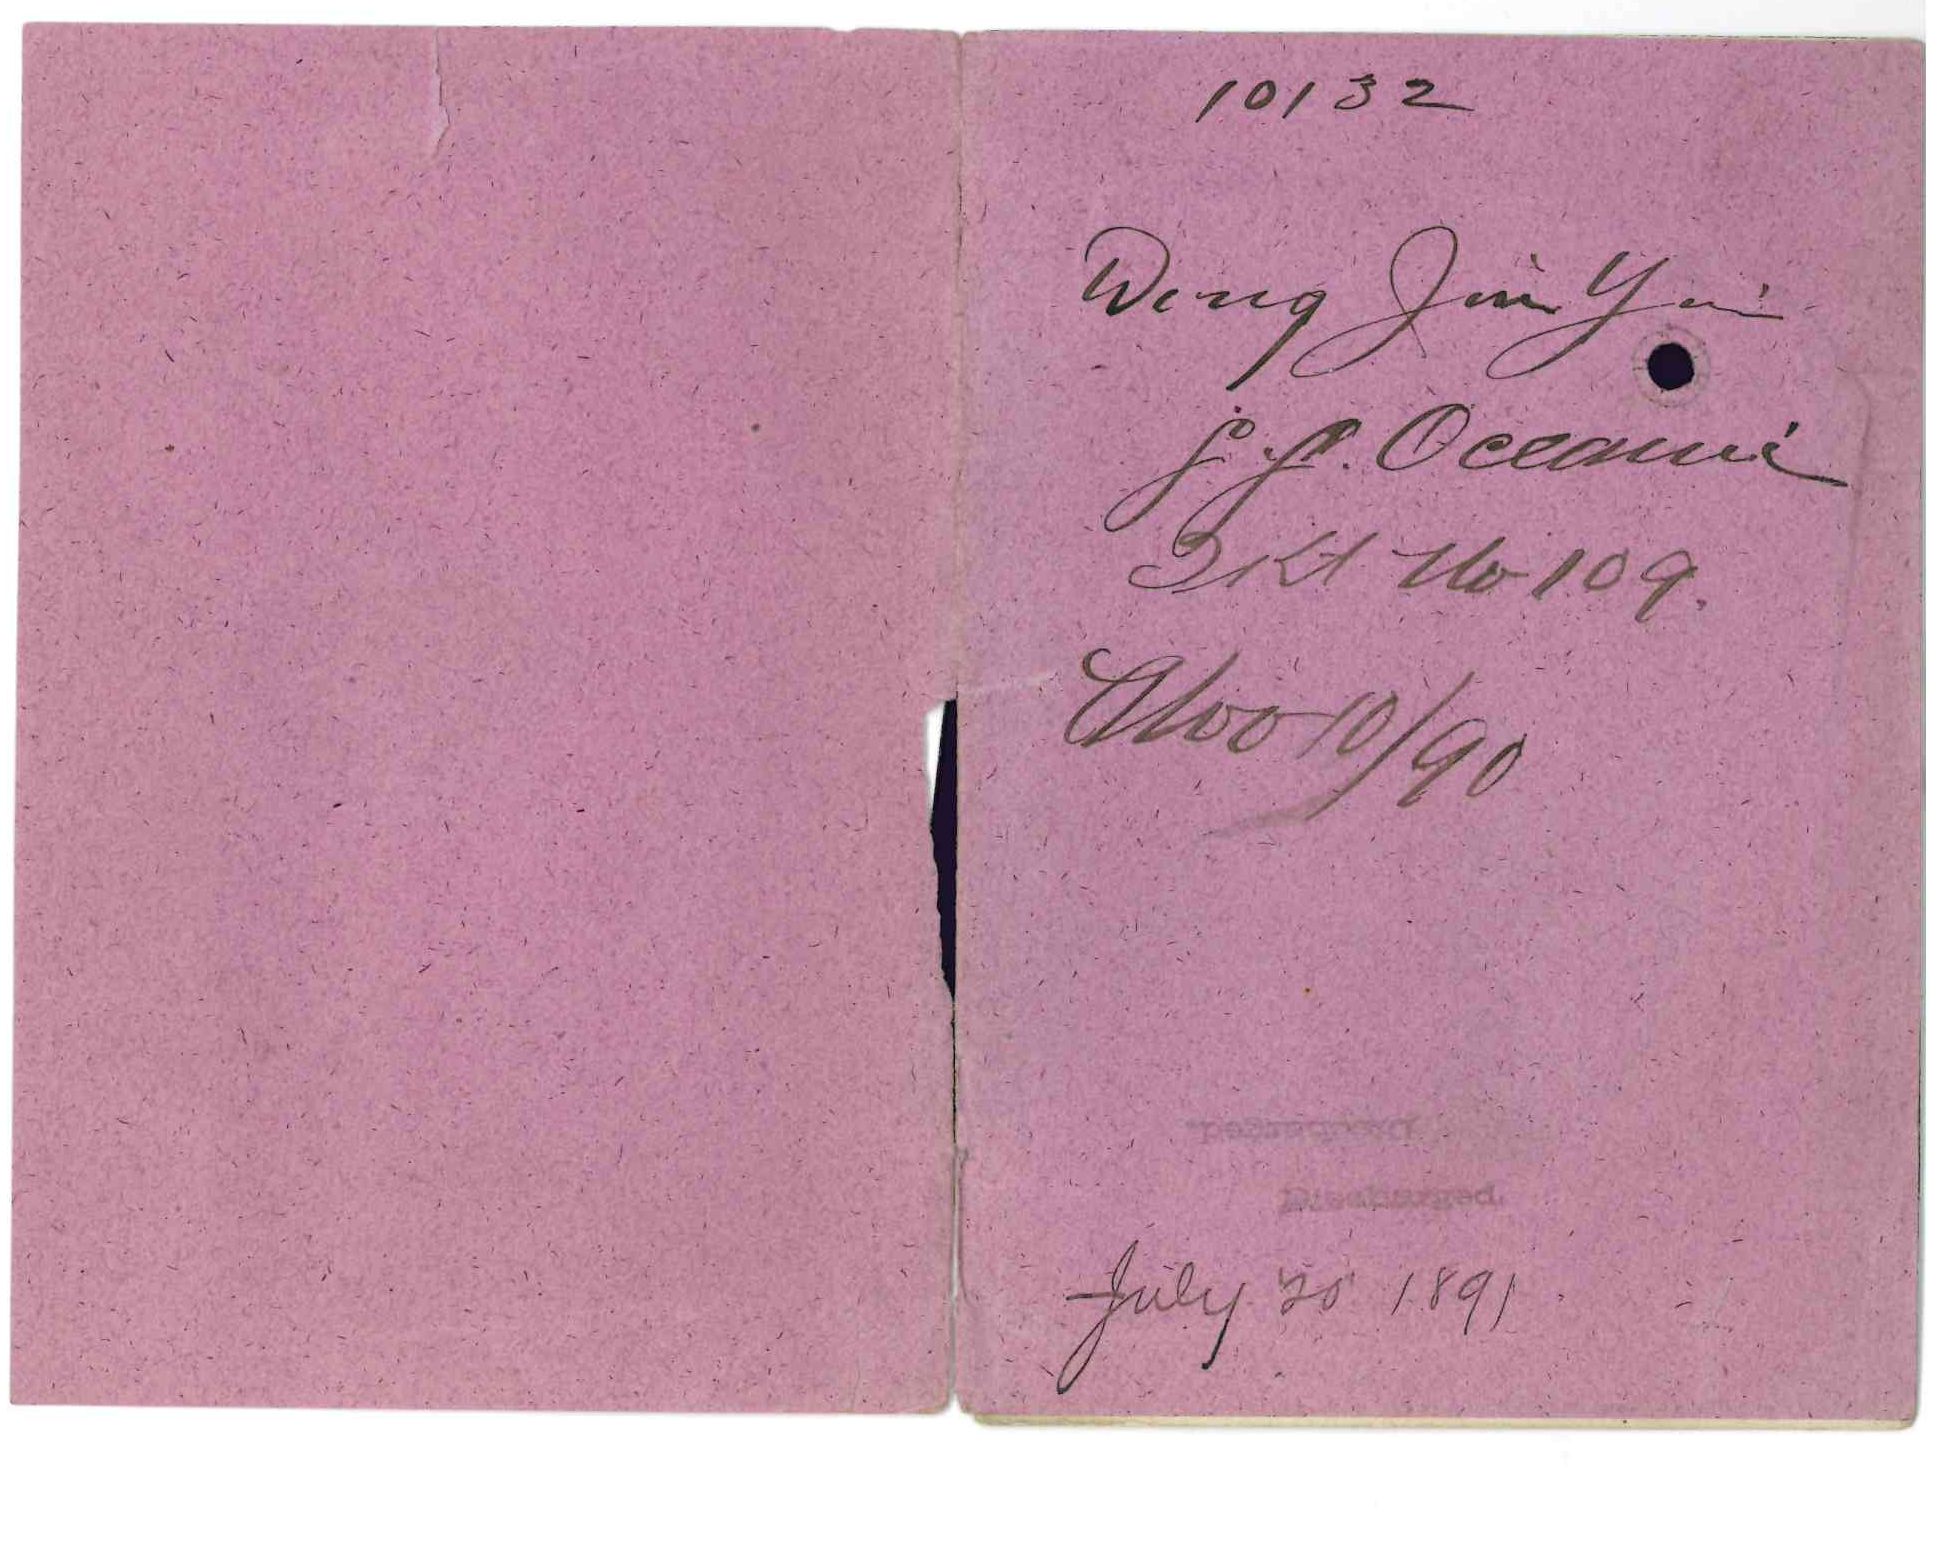 10132
Wong Jim Yui
S.S. Oceanic
Tkt No 109.
Nov 10/90
Discharged.
Discharged.
July 20 1891